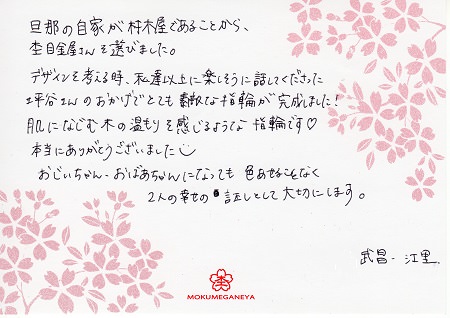 旦那の自家が材木屋であることから、
杢目金屋さんを選びました。
デザインを考える時、私達以上に楽しそうに話してくださった
坪谷さんのおかげでとても素敵な指輪が完成しました!
肌になじむ木の温もりを感じるような指輪です♡
本当にありがとうございました
おじいちゃん・おばあちゃんになっても色あせることなく
2人の幸せの証しとして大切にします。
武昌・江里
杢
MOKUMEGANEYA